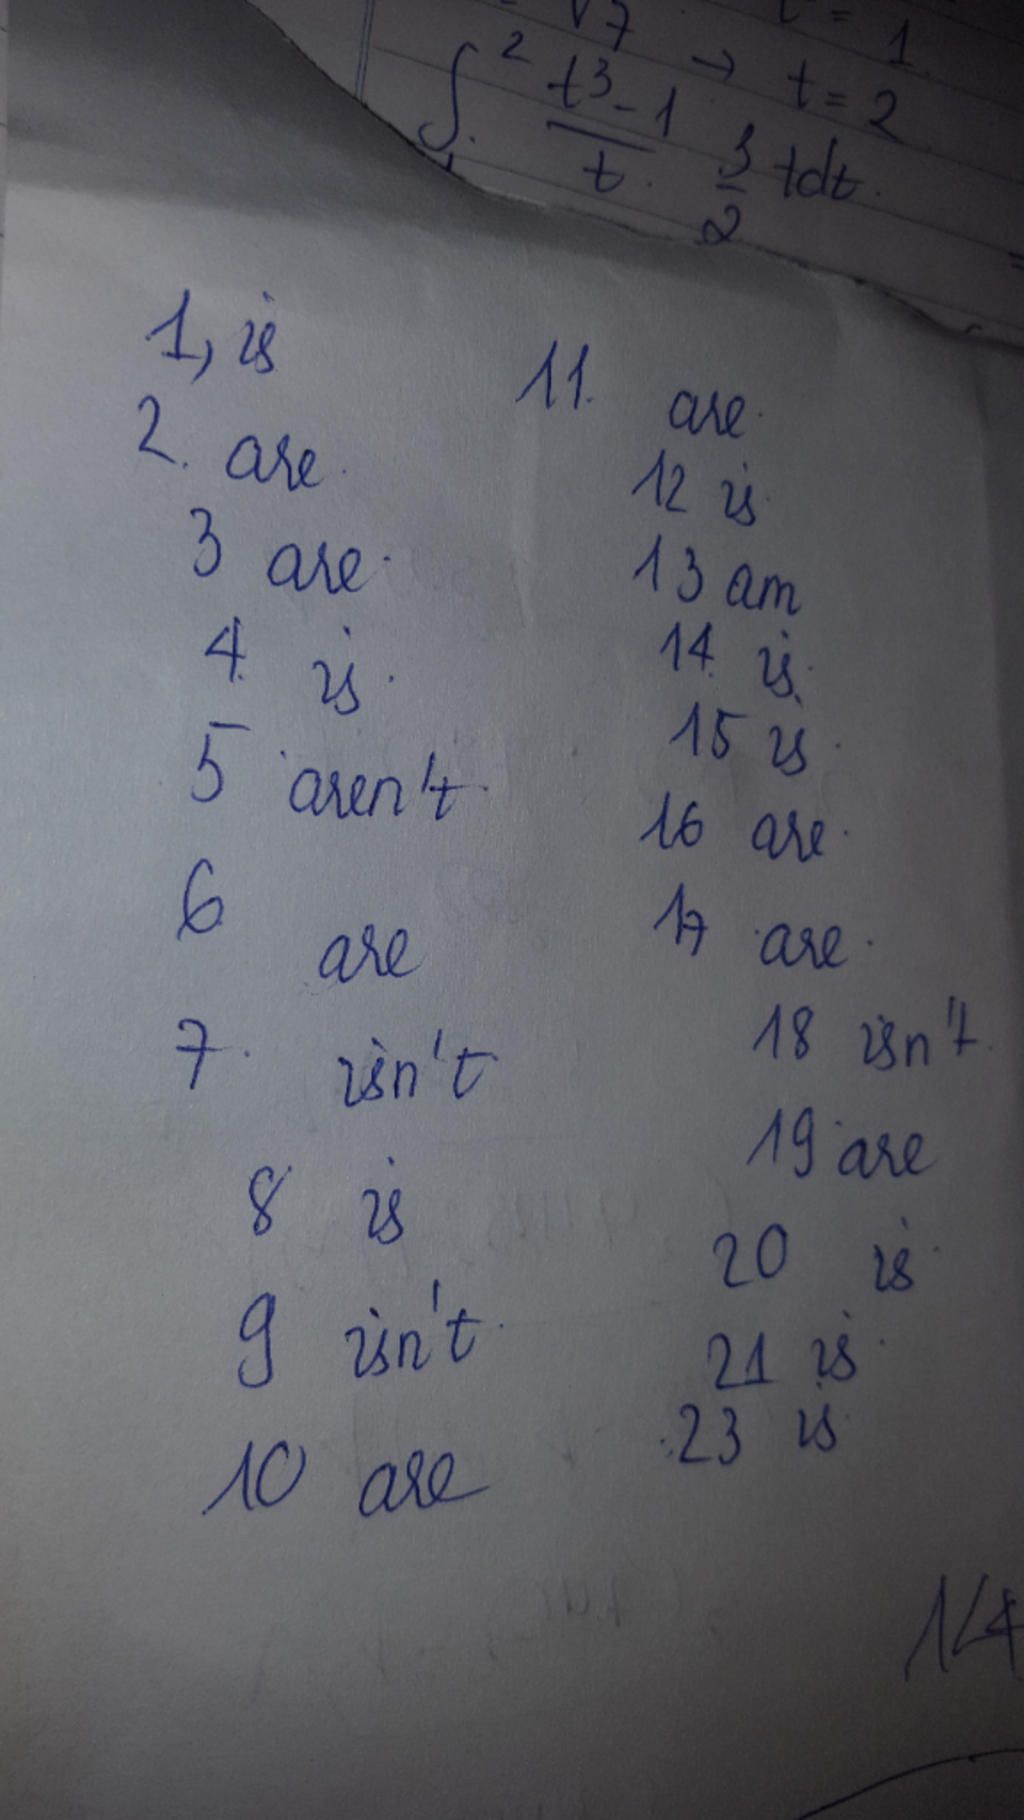 = √7 t = 1
∫ 2 t³-1 → t = 2
t 3/2 tdt
1, is
2. are
3 are
4. is
5 aren't
6 are
7. isn't
8 is
9 isn't
10 are
11. are
12 is
13 am
14. is
15 is
16 are
17 are
18 isn't
19 are
20 is
21 is
23 is
14